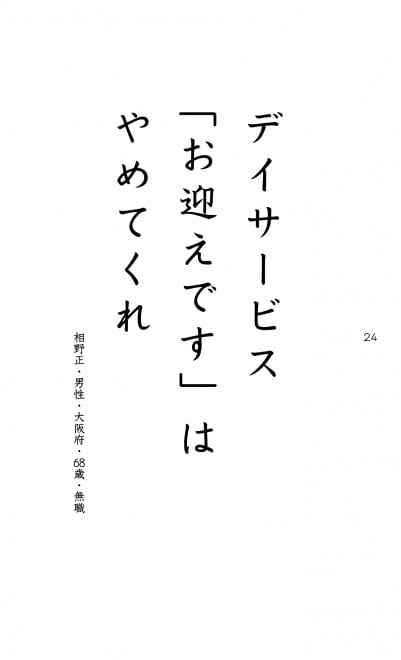 デイサービス
「お迎えです」は
やめてくれ
相野正・男性・大阪府・68歳・無職
24